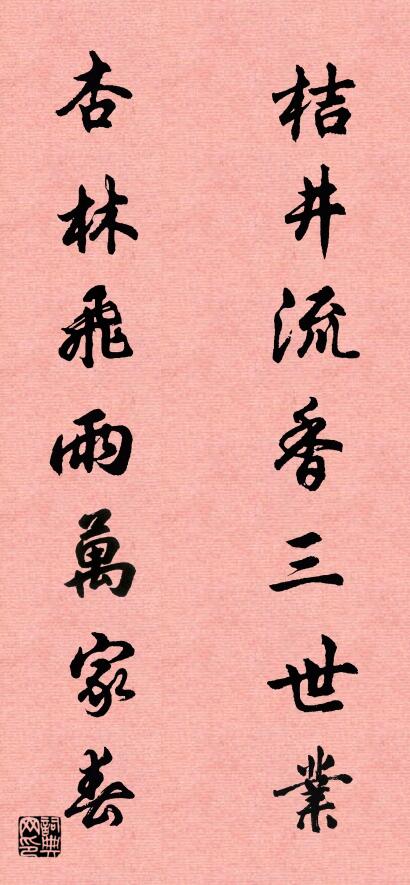 桔井流香三世業
杏林飛雨萬家春
詞典網印